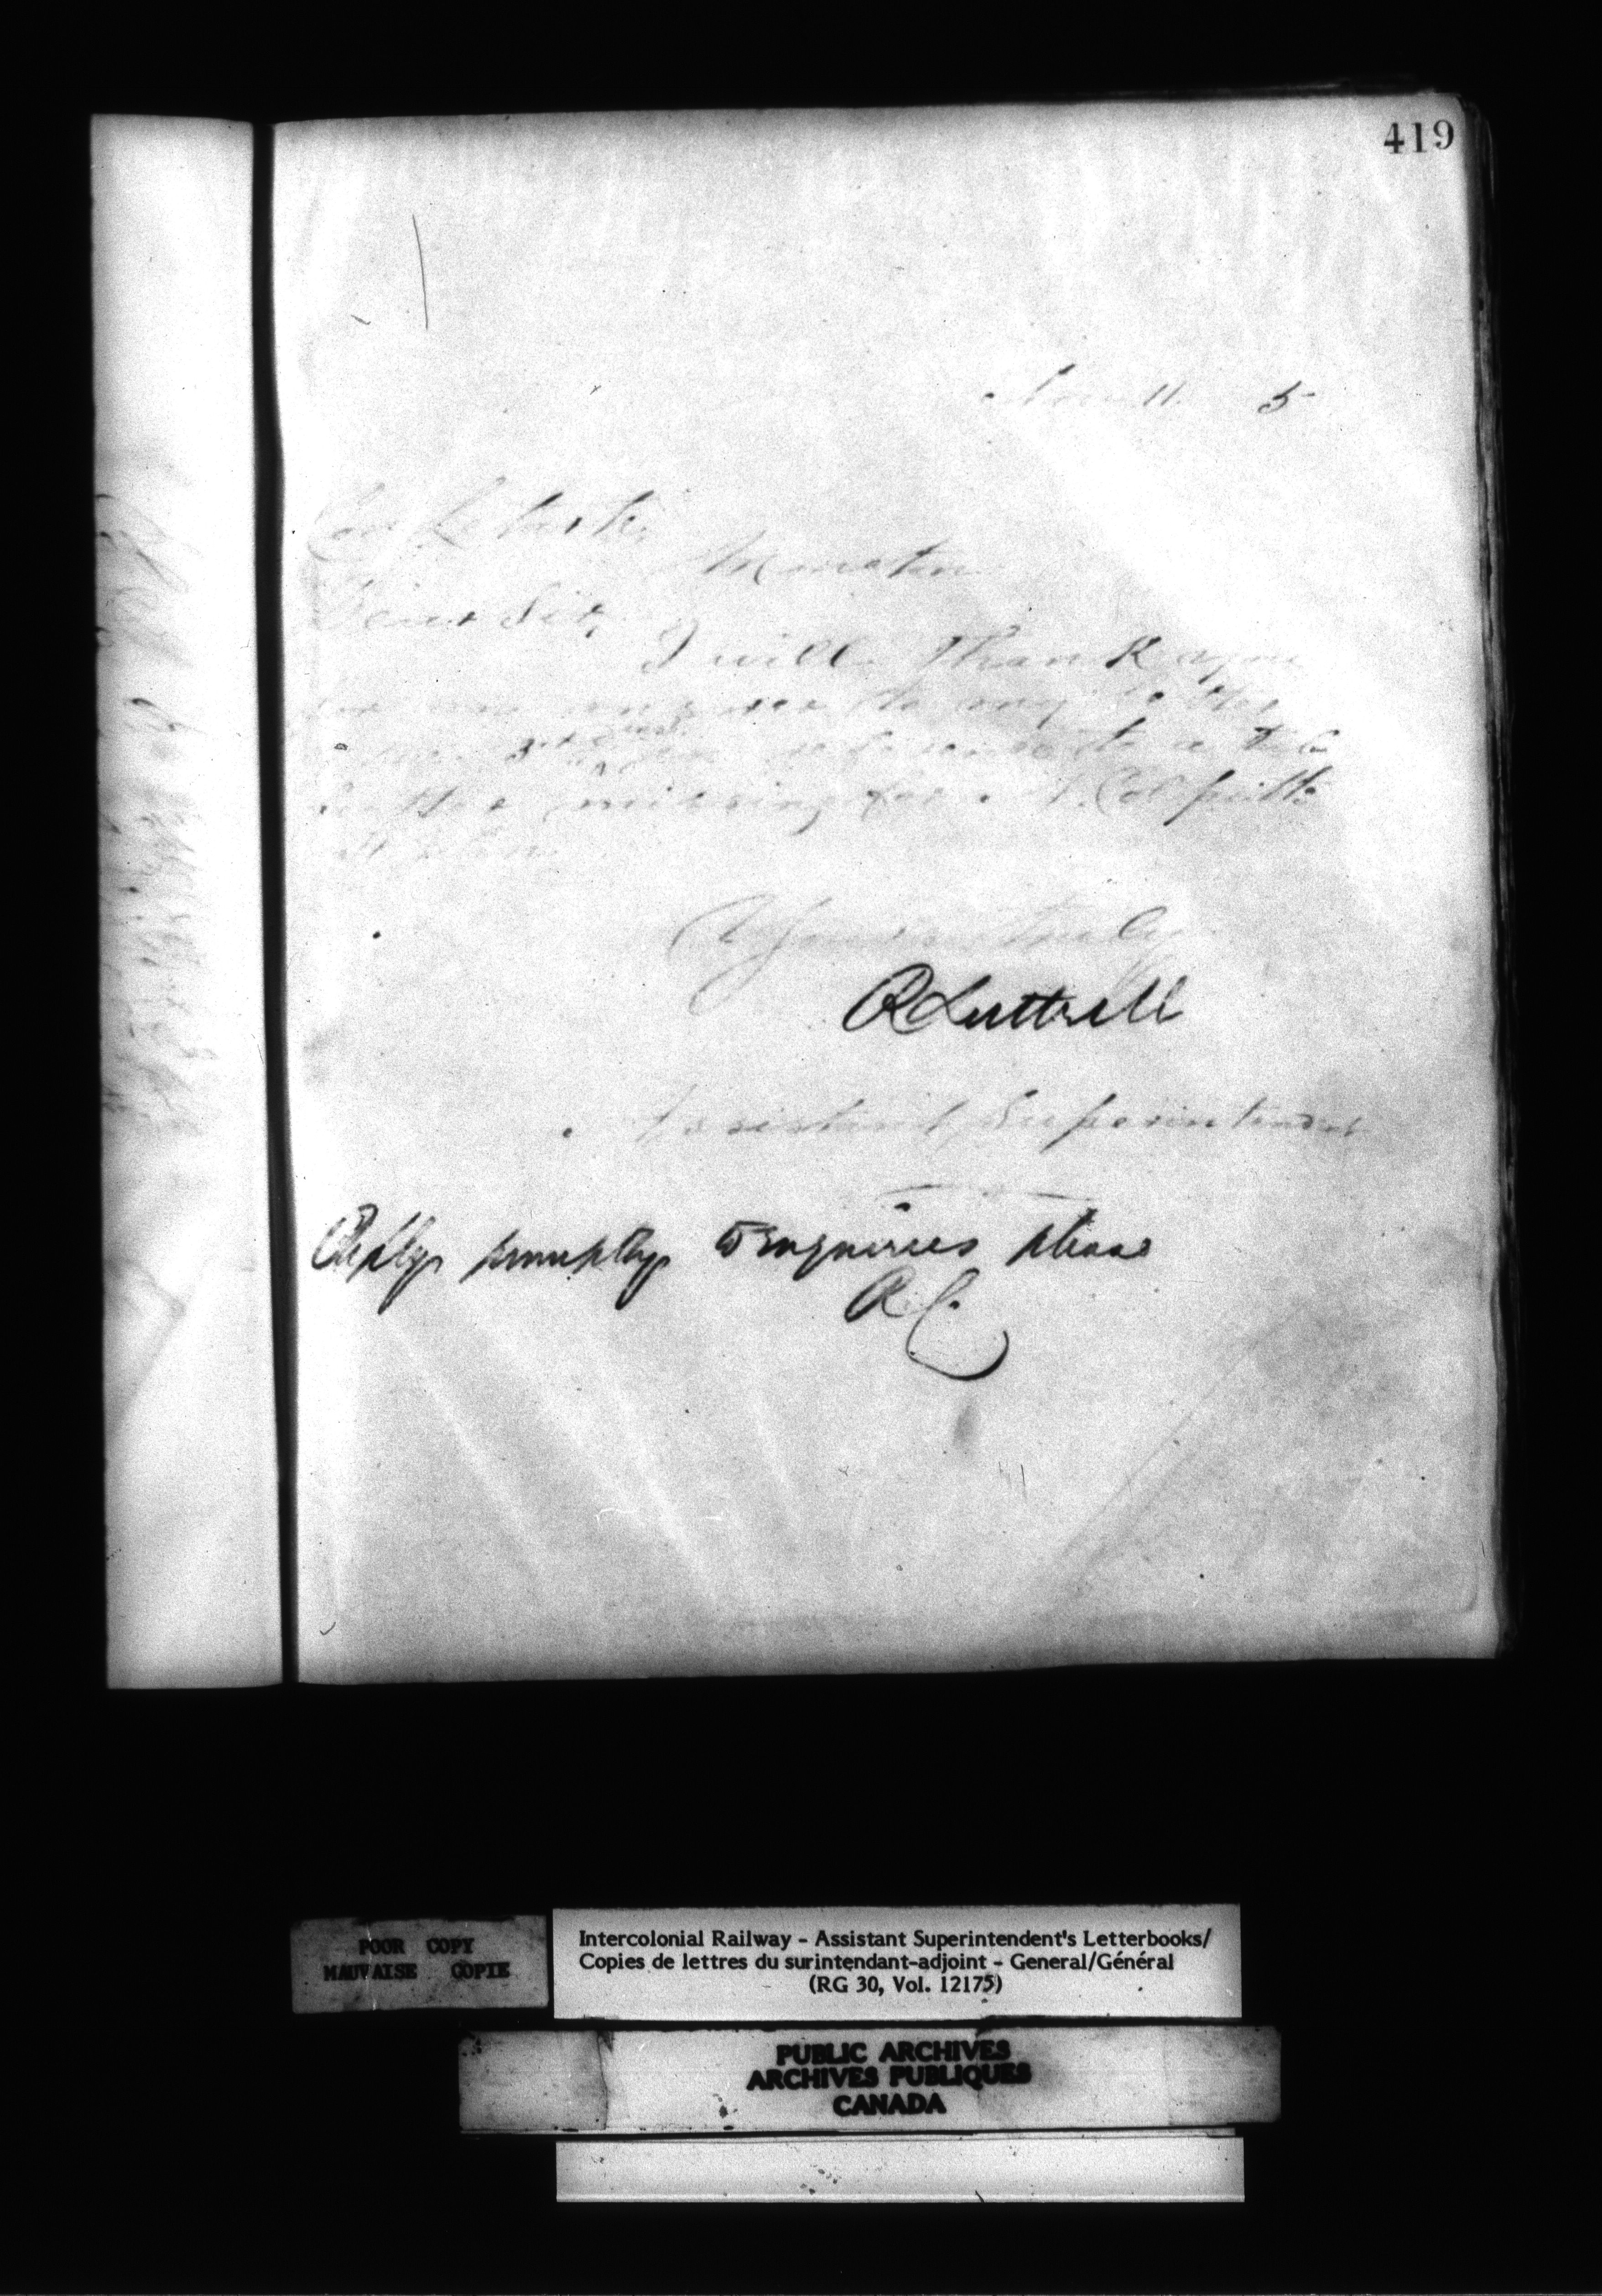 419
Nov 11 5
Moncton
Dear Sir,
I will thank you
for an answer to my letter
reference to a tub
butter missing for A. Colpitts
Yours truly
R Luttrell
Assistant Superintendent
Reply promptly to Enquiries please
RL
POOR COPY
MAUVAISE COPIE
Intercolonial Railway - Assistant Superintendent's Letterbooks/
Copies de lettres du surintendant-adjoint - General/Général
(RG 30, Vol. 12175)
PUBLIC ARCHIVES
ARCHIVES PUBLIQUES
CANADA